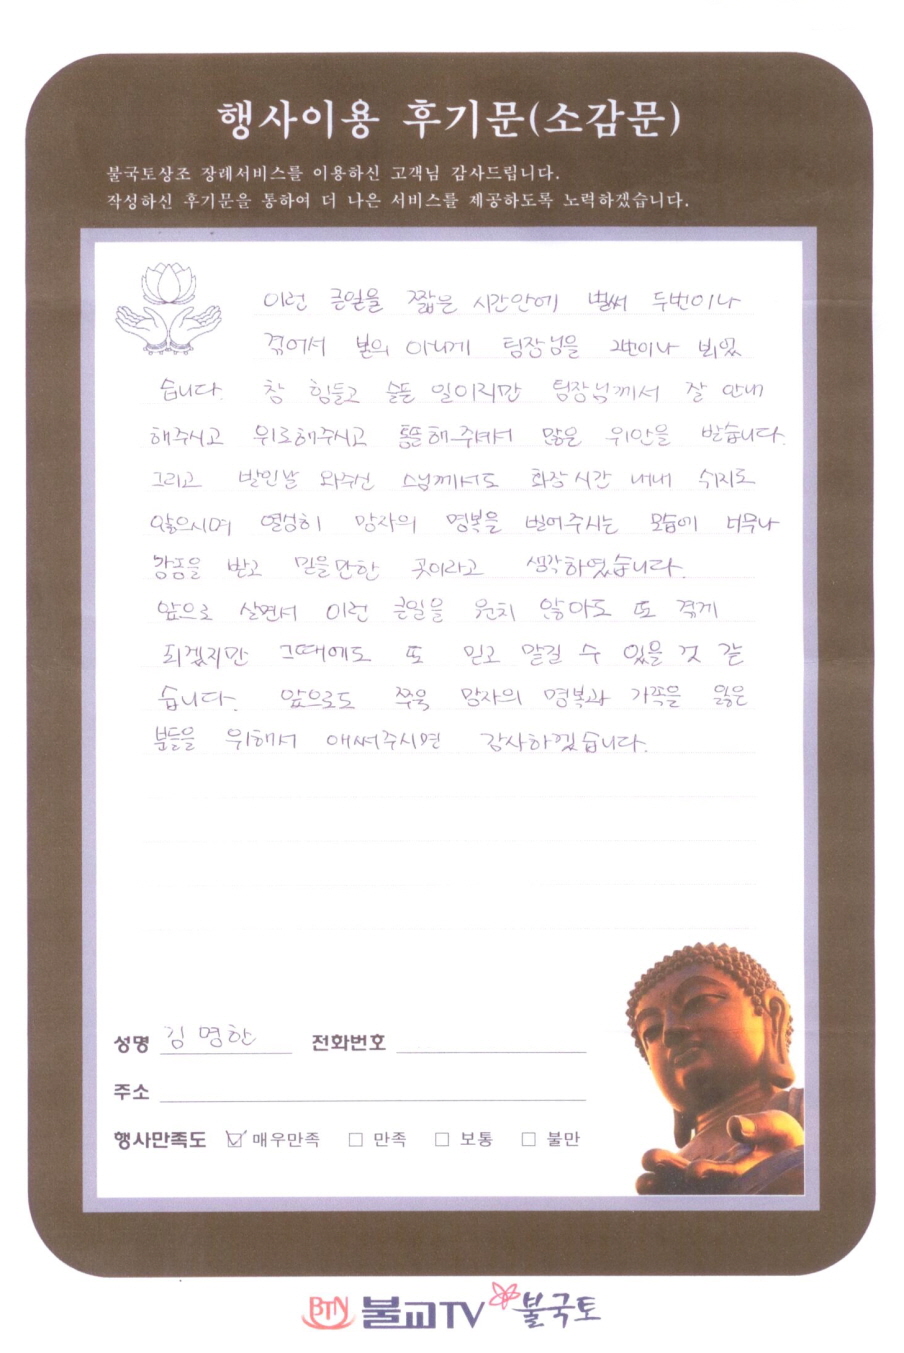 행사이용 후기문(소감문)
불국토상조 장례서비스를 이용하신 고객님 감사드립니다.
작성하신 후기문을 통하여 더 나은 서비스를 제공하도록 노력하겠습니다.
이런 큰일을 짧은 시간안에 벌써 두번이나
겪어서 본의 아니게 팀장님을 2번이나 뵈었
습니다. 참 힘들고 슬픈 일이지만 팀장님께서 잘 안내
해주시고 위로해주시고 통솔해주셔서 많은 위안을 받습니다.
그리고 발인날 와주신 스님께서도 화장시간 내내 쉬지도
않으시며 열성히 망자의 명복을 빌어주시는 모습에 너무나
감동을 받고 믿을만한 곳이라고 생각하였습니다.
앞으로 살면서 이런 큰일을 원치 않아도 또 겪게
되겠지만 그때에도 또 믿고 맡길 수 있을 것 같
습니다. 앞으로도 쭈욱 망자의 명복과 가족을 잃은
분들을 위해서 애써주시면 감사하겠습니다.
성명 김명한 전화번호
주소
행사만족도 ☑ 매우만족 □ 만족 □ 보통 □ 불만
BTN 불교TV 불국토